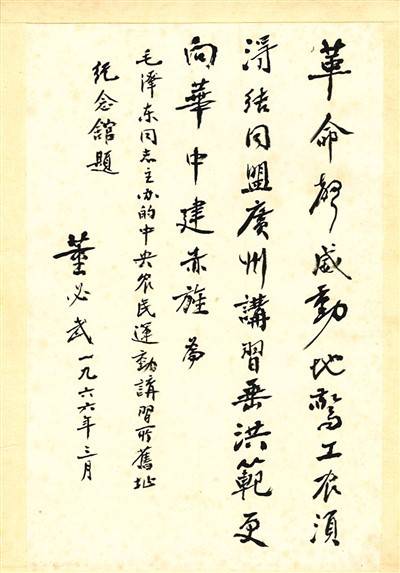 革命聲威動地驚工农須
得结同盟廣州講習垂洪範更
向華中建赤旌 為
毛泽东同志主办的中央农民运動講習所舊址
纪念館題
董必武一九六六年三月